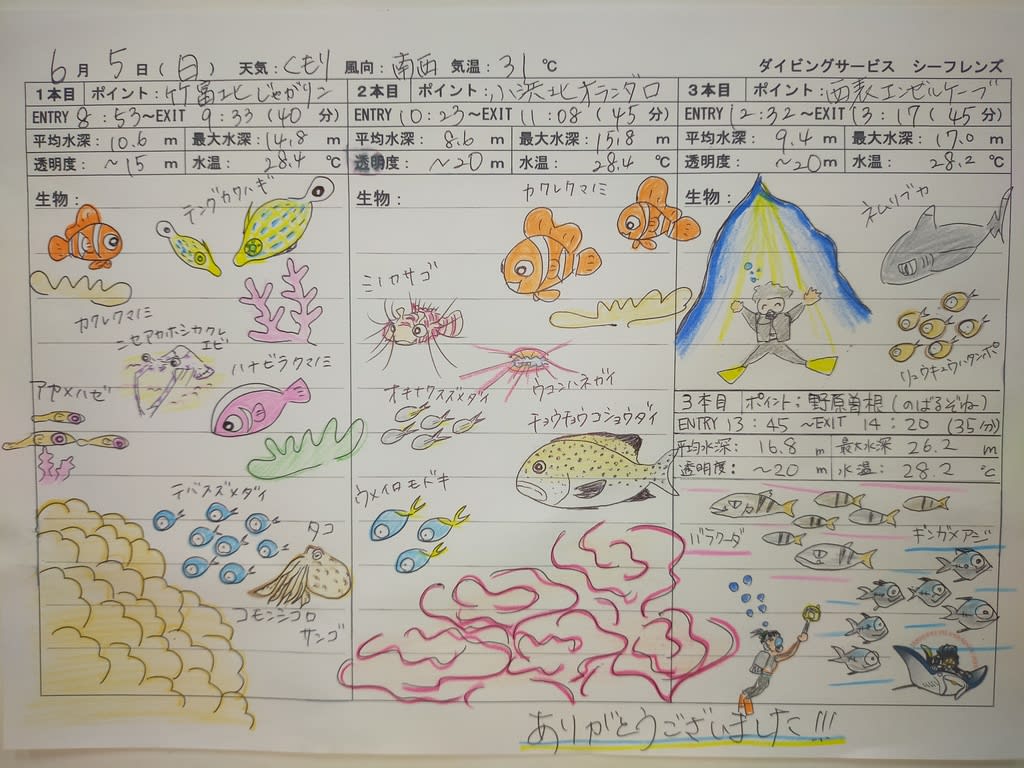 6月5日(日) 天気:くもり 風向:南西 気温:31℃ ダイビングサービス シーフレンズ
1本目 ポイント:竹富北じゃがリン
ENTRY 8:53～EXIT 9:33(40分)
平均水深:10.6m 最大水深:14.8m
透明度:～15m 水温:28.4℃
生物:
テングカワハギ
カクレクマノミ
ニセアカホシカクレ
エビ
ハナビラクマノミ
アヤメハゼ
デバスズメダイ
タコ
コモンシコロ
サンゴ
2本目 ポイント:小浜北オランダロ
ENTRY 10:23～EXIT 11:08(45分)
平均水深:8.6m 最大水深:15.8m
透明度:～20m 水温:28.4℃
生物:
カクレクマノミ
ミノカサゴ
ウコンハネガイ
オキナワスズメダイ
チョウチョウコショウダイ
ウメイロモドキ
3本目 ポイント:西表エンゼルケーブ
ENTRY 12:32～EXIT 13:17(45分)
平均水深:9.4m 最大水深:17.0m
透明度:～20m 水温:28.2℃
生物:
ネムリブカ
リュウキュウハタンポ
3本目 ポイント:野原曽根(のばるぞね)
ENTRY 13:45～EXIT 14:20(35分)
平均水深:16.8m 最大水深 26.2m
透明度:～20m 水温:28.2℃
バラクーダ
ギンガメアジ
ありがとうございました!!!